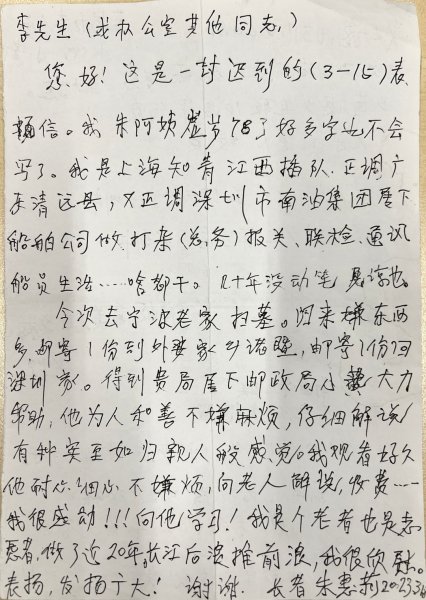 李先生（或办公室其他同志）
您好！这是一封迟到的（3-15）表
扬信。我朱阿姨虚岁78了好多字也不会
写了。我是上海知青江西插队，正调广
东清远县，又正调深圳市南油集团属下
船舶公司做打杂（总务）报关、联检、通讯
船员生活……啥都干。几十年没动笔见谅也。
今次去宁波老家扫墓。归来嫌东西
多邮寄1份到外婆家，邮寄1份回
深圳家。得到贵局属下邮政局小大力
帮助，他为人和善不嫌麻烦，仔细解说！
有种宾至如归亲人般感觉。我观看好久
他耐心细心不嫌烦，向老人解说，收费……
我很感动！！！向他学习！我是个老者也是志
愿者，做了近20年，长江后浪推前浪，我很欣慰。
表扬，发扬广大！谢谢. 长者朱惠莉